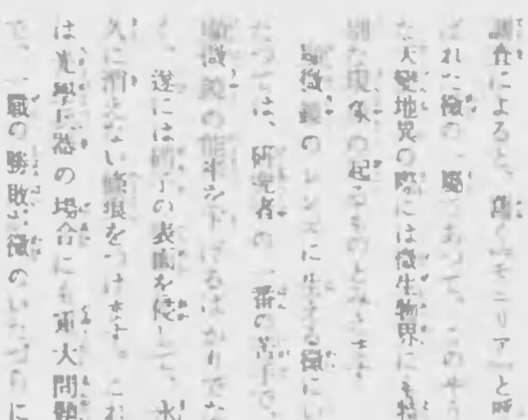 調査によると、モニリアと呼
ばれた黴の一屬であつて、この
な天變地異の際には微生物界にも特
別な現象の起るものとみえます
顯微鏡のレンズに生える黴にい
たつては、研究者の一番の苦手で、
顯微鏡の能率を下げるばかりでな
く、遂には硝子の表面を侵して、永
久に消えない傷痕をつけます。これ
は光學兵器の場合にも重大問題
で、一戰の勝敗が黴のいたづらに